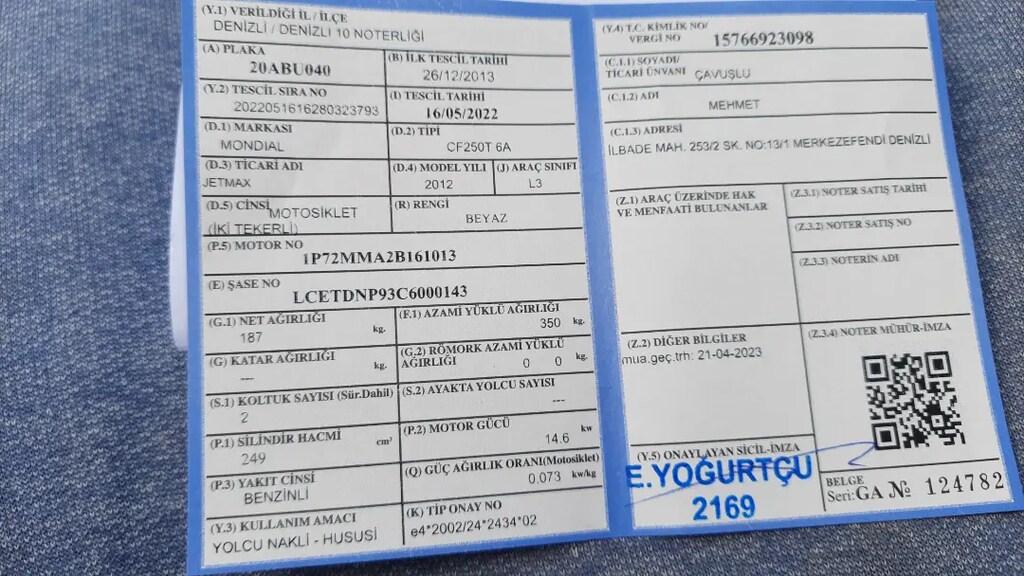 (Y.1) VERİLDİĞİ İL / İLÇE
DENİZLİ / DENİZLİ 10 NOTERLİĞİ
(A) PLAKA
20ABU040
(B) İLK TESCİL TARİHİ
26/12/2013
(Y.2) TESCİL SIRA NO
2022051616280323793
(I) TESCİL TARİHİ
16/05/2022
(D.1) MARKASI
MONDIAL
(D.2) TİPİ
CF250T 6A
(D.3) TİCARİ ADI
JETMAX
(D.4) MODEL YILI
2012
(J) ARAÇ SINIFI
L3
(D.5) CİNSİ
MOTOSİKLET
(İKİ TEKERLİ)
(R) RENGİ
BEYAZ
(P.5) MOTOR NO
1P72MMA2B161013
(E) ŞASE NO
LCETDNP93C6000143
(G.1) NET AĞIRLIĞI
187 kg.
(F.1) AZAMİ YÜKLÜ AĞIRLIĞI
350 kg.
(G) KATAR AĞIRLIĞI
--- kg.
(G.2) RÖMORK AZAMİ YÜKLÜ
AĞIRLIĞI 0 0 kg.
(S.1) KOLTUK SAYISI (Sür.Dahil)
2
(S.2) AYAKTA YOLCU SAYISI
---
(P.1) SİLİNDİR HACMİ cm³
249
(P.2) MOTOR GÜCÜ
14.6 kw
(P.3) YAKIT CİNSİ
BENZİNLİ
(Q) GÜÇ AĞIRLIK ORANI(Motosiklet)
0.073 kw/kg
(Y.3) KULLANIM AMACI
YOLCU NAKLİ - HUSUSİ
(K) TİP ONAY NO
e4*2002/24*2434*02
(Y.4) T.C. KİMLİK NO/
VERGİ NO
15766923098
(C.1.1) SOYADI/
TİCARİ ÜNVANI ÇAVUŞLU
(C.1.2) ADI
MEHMET
(C.1.3) ADRESİ
İLBADE MAH. 253/2 SK. NO:13/1 MERKEZEFENDİ DENİZLİ
(Z.1) ARAÇ ÜZERİNDE HAK
VE MENFAATİ BULUNANLAR
(Z.3.1) NOTER SATIŞ TARİHİ
(Z.3.2) NOTER SATIŞ NO
(Z.3.3) NOTERİN ADI
(Z.2) DİĞER BİLGİLER
mua.geç.trh: 21-04-2023
(Z.3.4) NOTER MÜHÜR-İMZA
(Y.5) ONAYLAYAN SİCİL-İMZA
E.YOĞURTÇU
2169
BELGE
Seri:GA № 124782